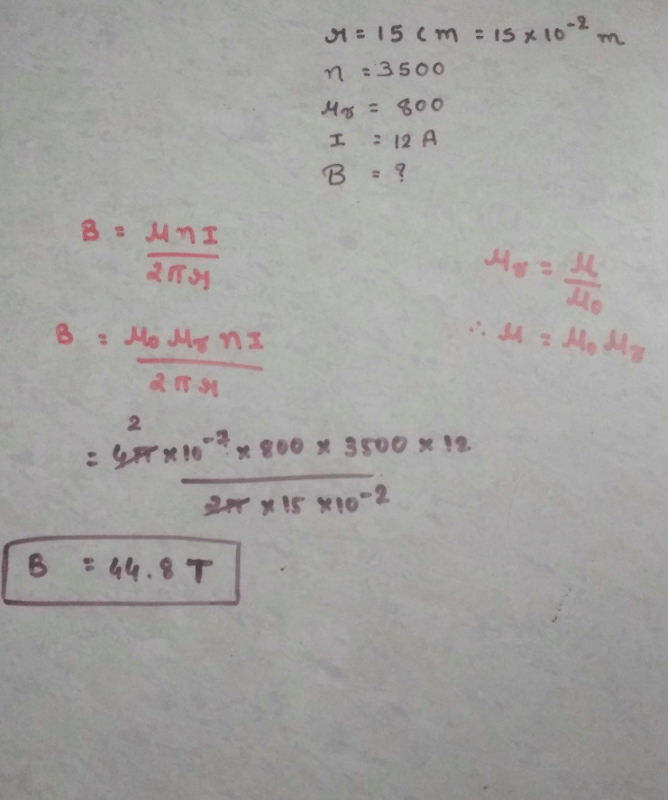 r = 15 cm = 15 × 10⁻² m
n = 3500
μr = 800
I = 12 A
B = ?
B = μnI / 2πr
μr = μ / μ0
B = μ0 μr nI / 2πr
∴ μ = μ0 μr
= 4π × 10⁻⁷ × 800 × 3500 × 12 / 2π × 15 × 10⁻²
2
B = 44.8 T